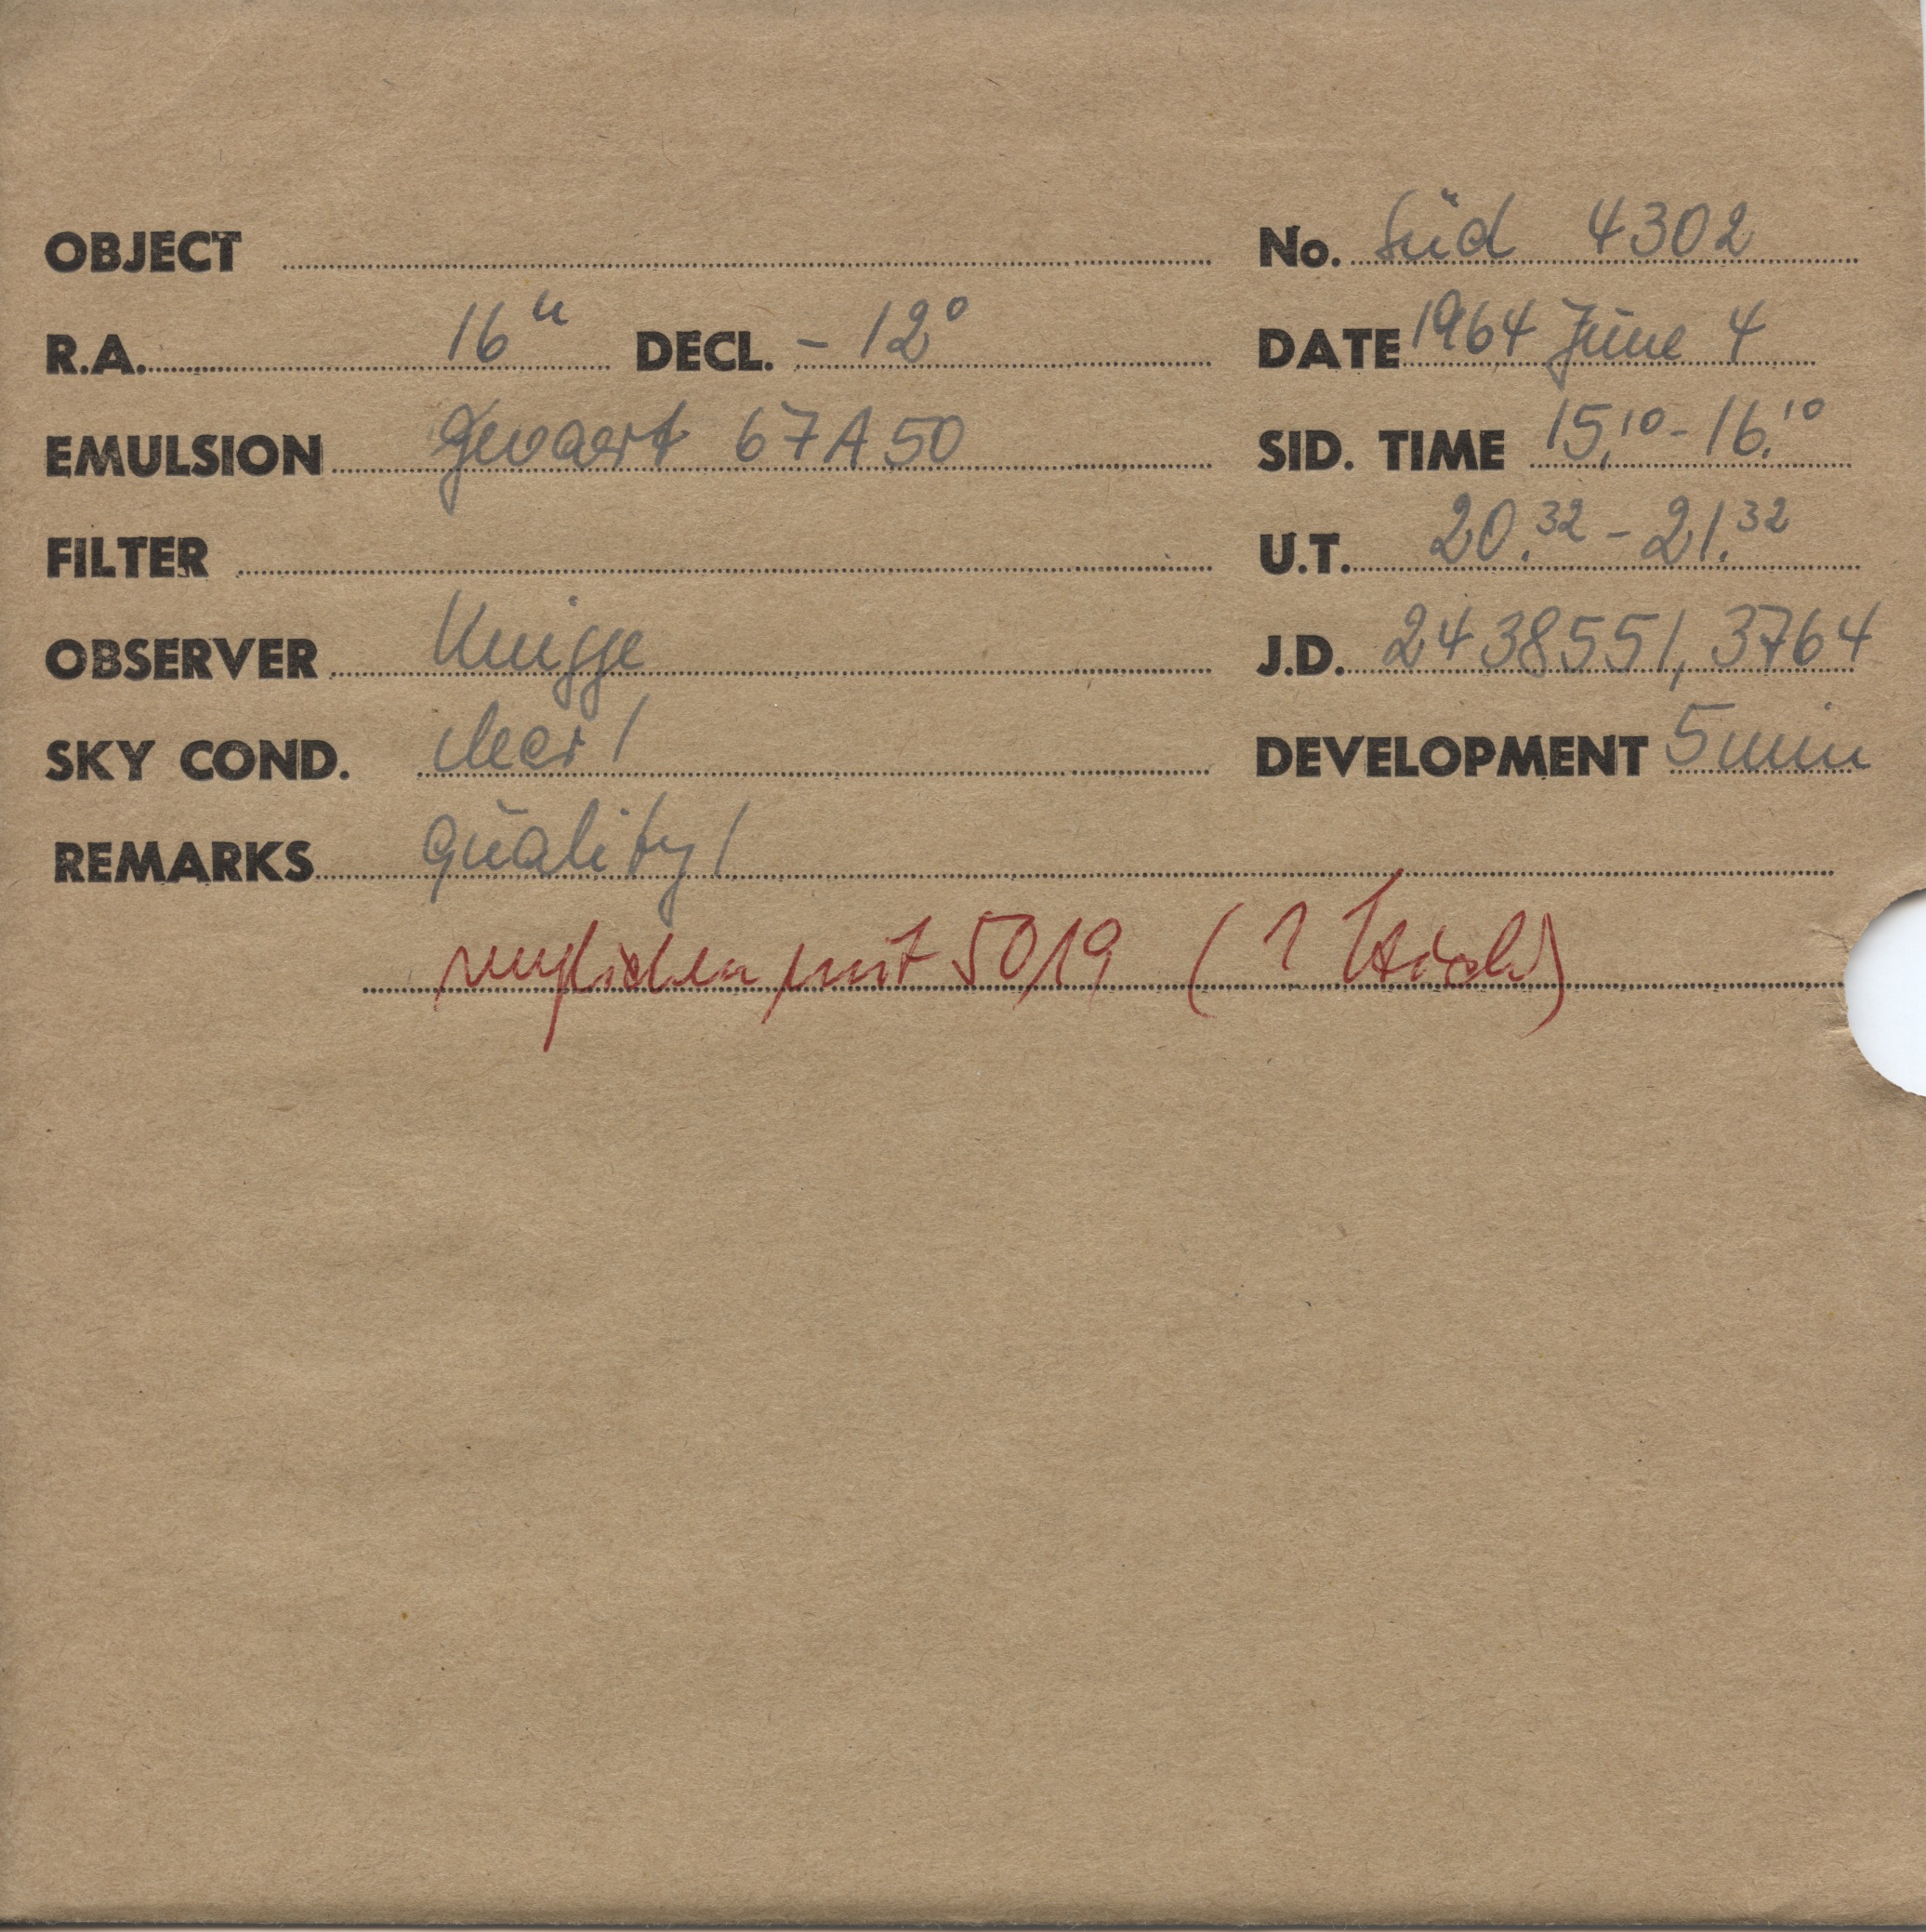 OBJECT No. Süd 4302
R.A. 16h DECL. - 12°
DATE 1964 June 4
EMULSION Gevaert 67A50
SID. TIME 15.10 - 16.10
FILTER
U.T. 20.32 - 21.32
OBSERVER Knigge
J.D. 2438551,3764
SKY COND. clear 1
DEVELOPMENT 5 min
REMARKS quality 1
verglichen mit 5019 (